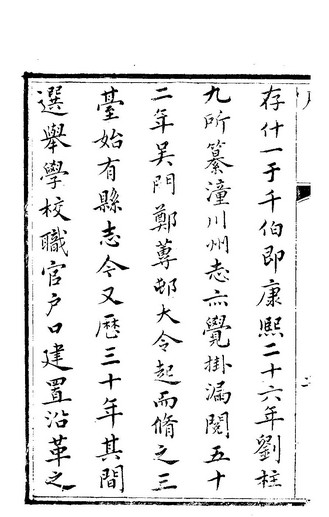 存什一于千伯即康熙二十六年劉柱
九所纂潼川州志亦覺掛漏閱五十
二年吳門鄭蓴邨大令起而脩之三
臺始有縣志今又歷三十年其間
選舉學校職官户口建置沿革之